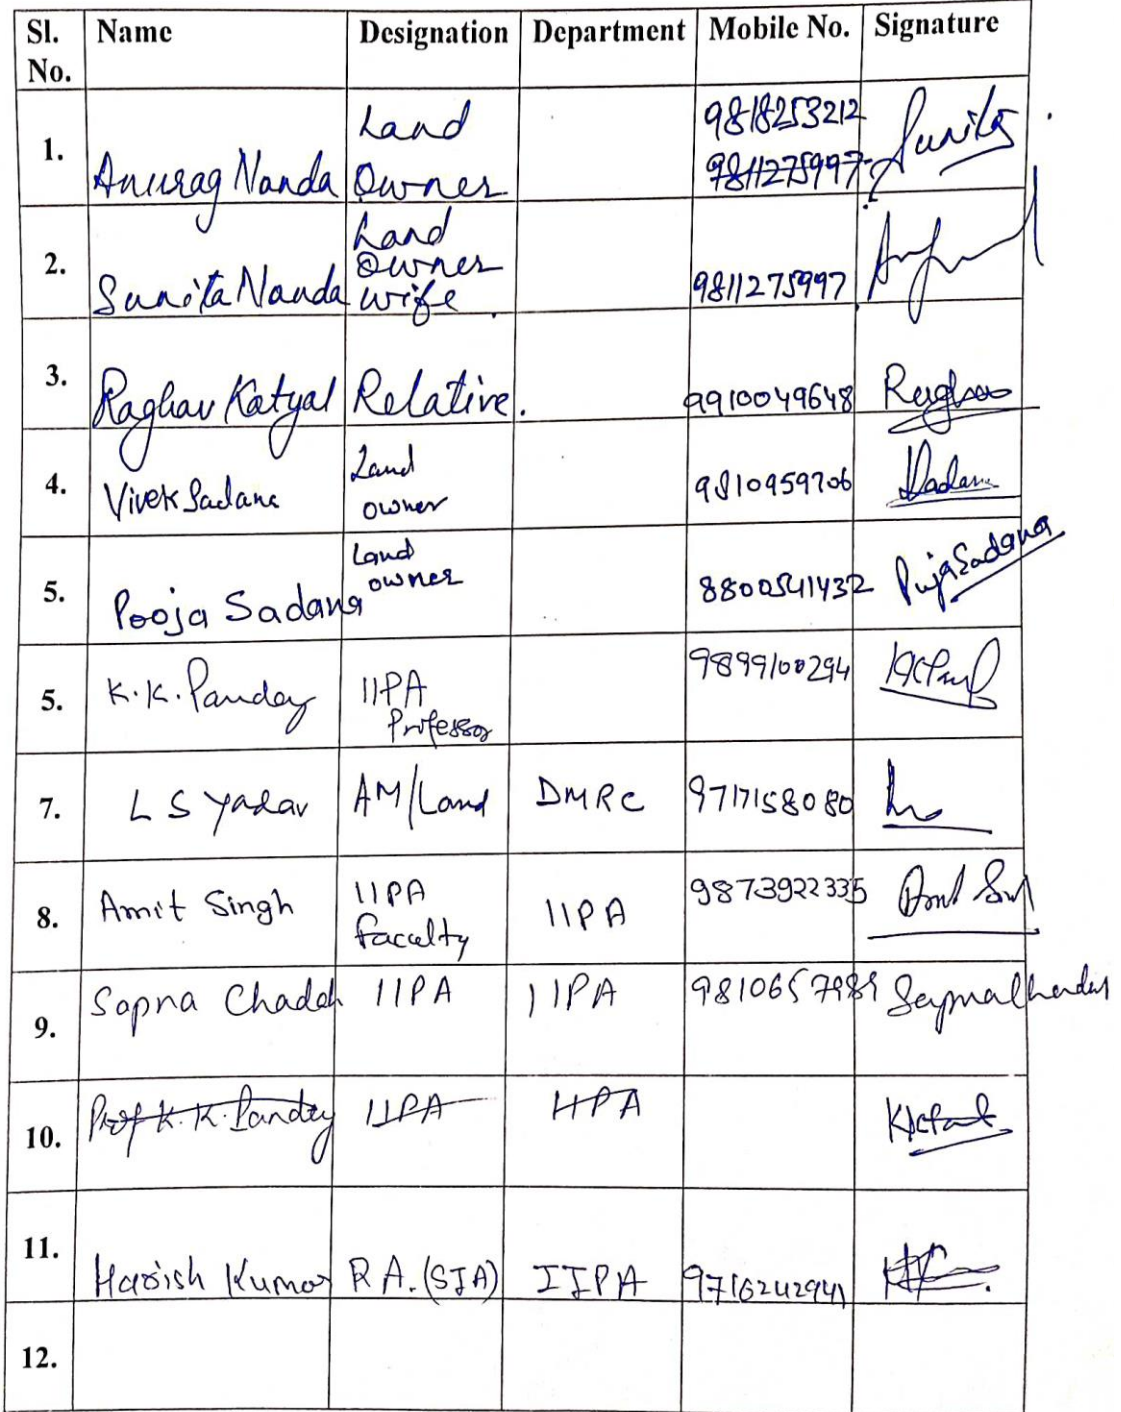 Sl. No. Name Designation Department Mobile No. Signature
1. Anurag Nanda Land Owner 9818253212 9811275997 Sunita
2. Sunita Nanda Land Owner wife 9811275997
3. Raghav Katyal Relative. 9910049648 Raghav
4. Vivek Sadana Land owner 9810959706 Sadana
5. Pooja Sadana Land owner 8800541432 Puja Sadana
5. K.K. Pandey IIPA Professor 9899100294
7. L S Yadav AM/Land DMRC 9717158080
8. Amit Singh IIPA faculty IIPA 9873922335
9. Sapna Chadah IIPA IIPA
10. Prof K.K. Pandey IIPA IIPA
11. Harish Kumar R A. (SIA) IIPA 9716242941
12.